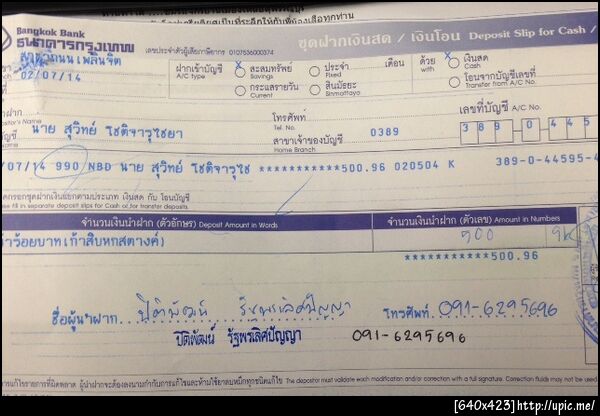 Bangkok Bank
ธนาคารกรุงเทพ
เลขประจำตัวผู้เสียภาษีอากร 0107536000374
ชุดฝากเงินสด / เงินโอน Deposit Slip for Cash /
สาขาถนนเพลินจิต
02/07/14
ฝากเข้าบัญชี A/C type
X สะสมทรัพย์ Savings
ประจำ Fixed
เดือน Month
ด้วย with
X เงินสด Cash
กระแสรายวัน Current
สินมัธยะ Sinmattaya
โอนจากบัญชีเลขที่ Transfer from A/C No.
นาย สุวิทย์ โชติจารุไชยา
โทรศัพท์ Tel. No.
สาขาเจ้าของบัญชี Home Branch
0389
เลขที่บัญชี A/C No.
389 0 445
/07/14 990 NBD นาย สุวิทย์ โชติจารุไช ***********500.96 020504 K 389-0-44595-
จำนวนเงินนำฝาก (ตัวอักษร) Deposit Amount in Words
จำนวนเงินนำฝาก (ตัวเลข) Amount in Numbers
ห้าร้อยบาท(เก้าสิบหกสตางค์)
500 96
***********500.96
ชื่อผู้นำฝาก ปิติพัฒน์ รัฐพรเลิศปัญญา โทรศัพท์ 091-6295696
ปิติพัฒน์ รัฐพรเลิศปัญญา 091-6295696
The depositor must validate each modification and/or correction with a full signature. Correction fluids may not be used
[640x423]http://upic.me/